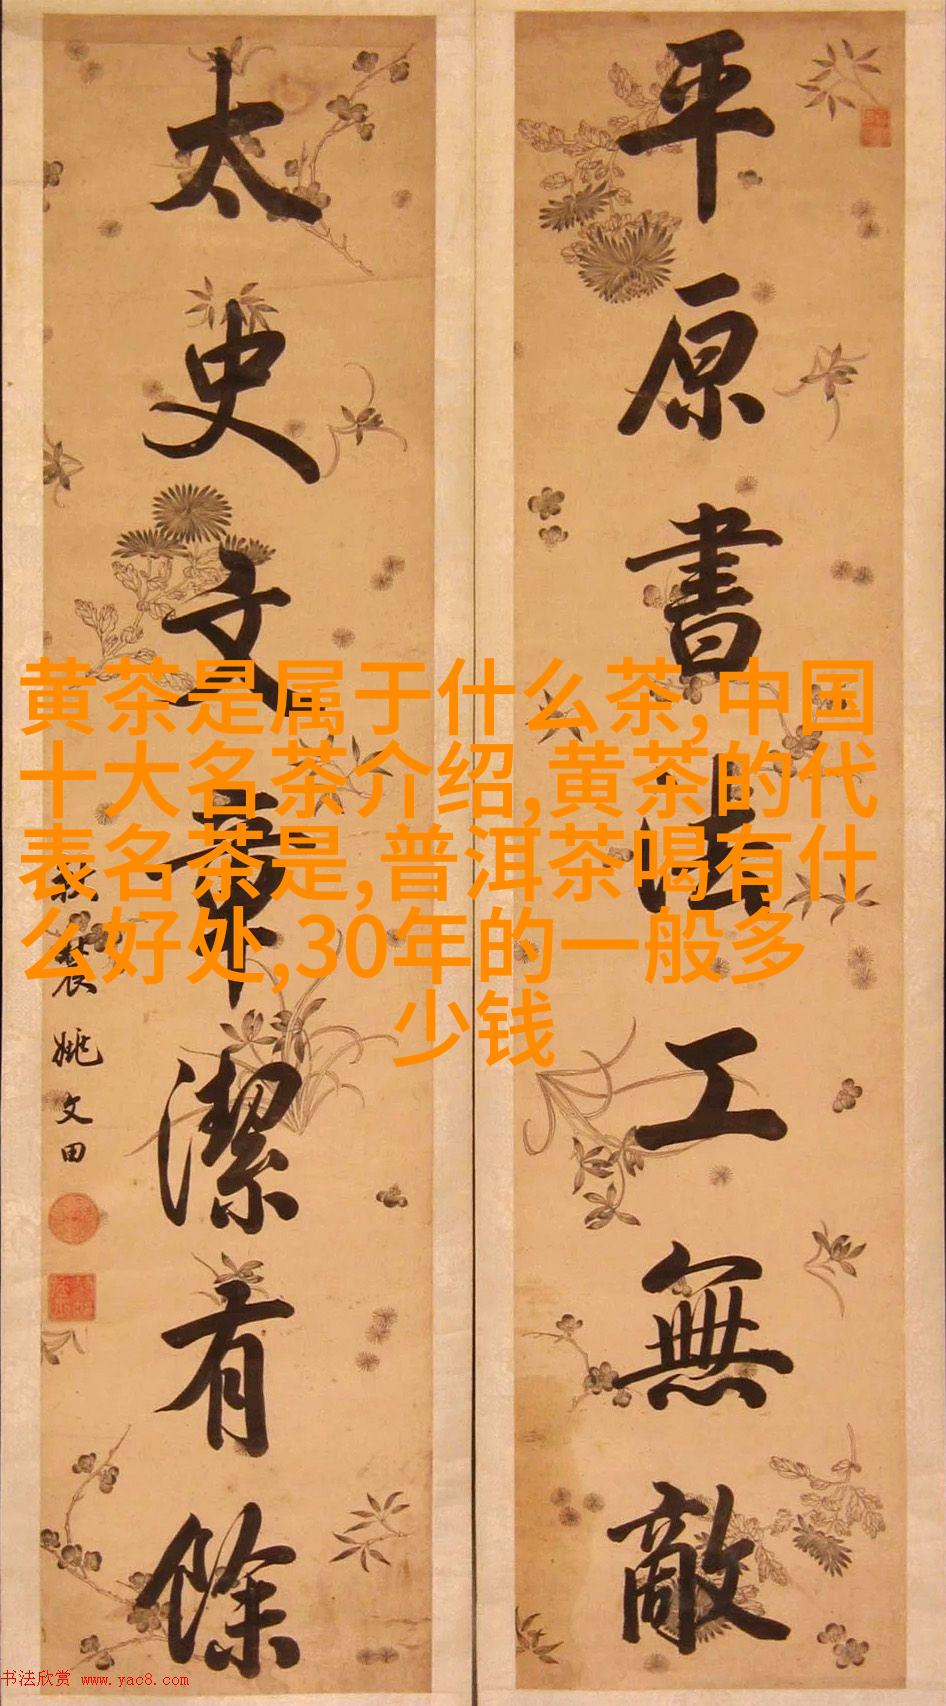 平原書法工無敵
太史文章潔有餘
秋農姚文田
黄茶是属于什么茶,中国
十大名茶介绍,黄茶的代
表名茶是,普洱茶喝有什
么好处,30年的一般多
少钱
书法欣赏 www.yac8.com